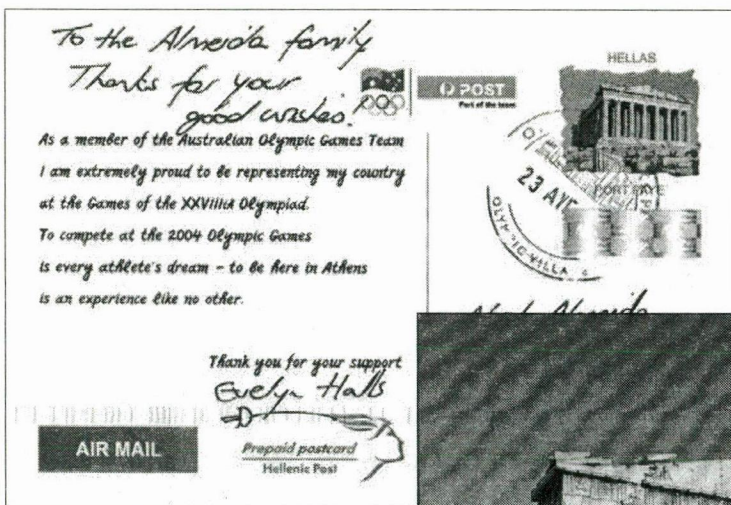 To the Almeida family
Thanks for your
good wishes!
POST
Part of the team
HELLAS
PORT PAYE
23 ΑΥΓ
OLYMPIC VILLA
As a member of the Australian Olympic Games Team
I am extremely proud to be representing my country
at the Games of the XXVIIIth Olympiad.
To compete at the 2004 Olympic Games
is every athlete's dream – to be here in Athens
is an experience like no other.
Almeida
Thank you for your support
Evelyn Halls
AIR MAIL
Prepaid postcard
Hellenic Post